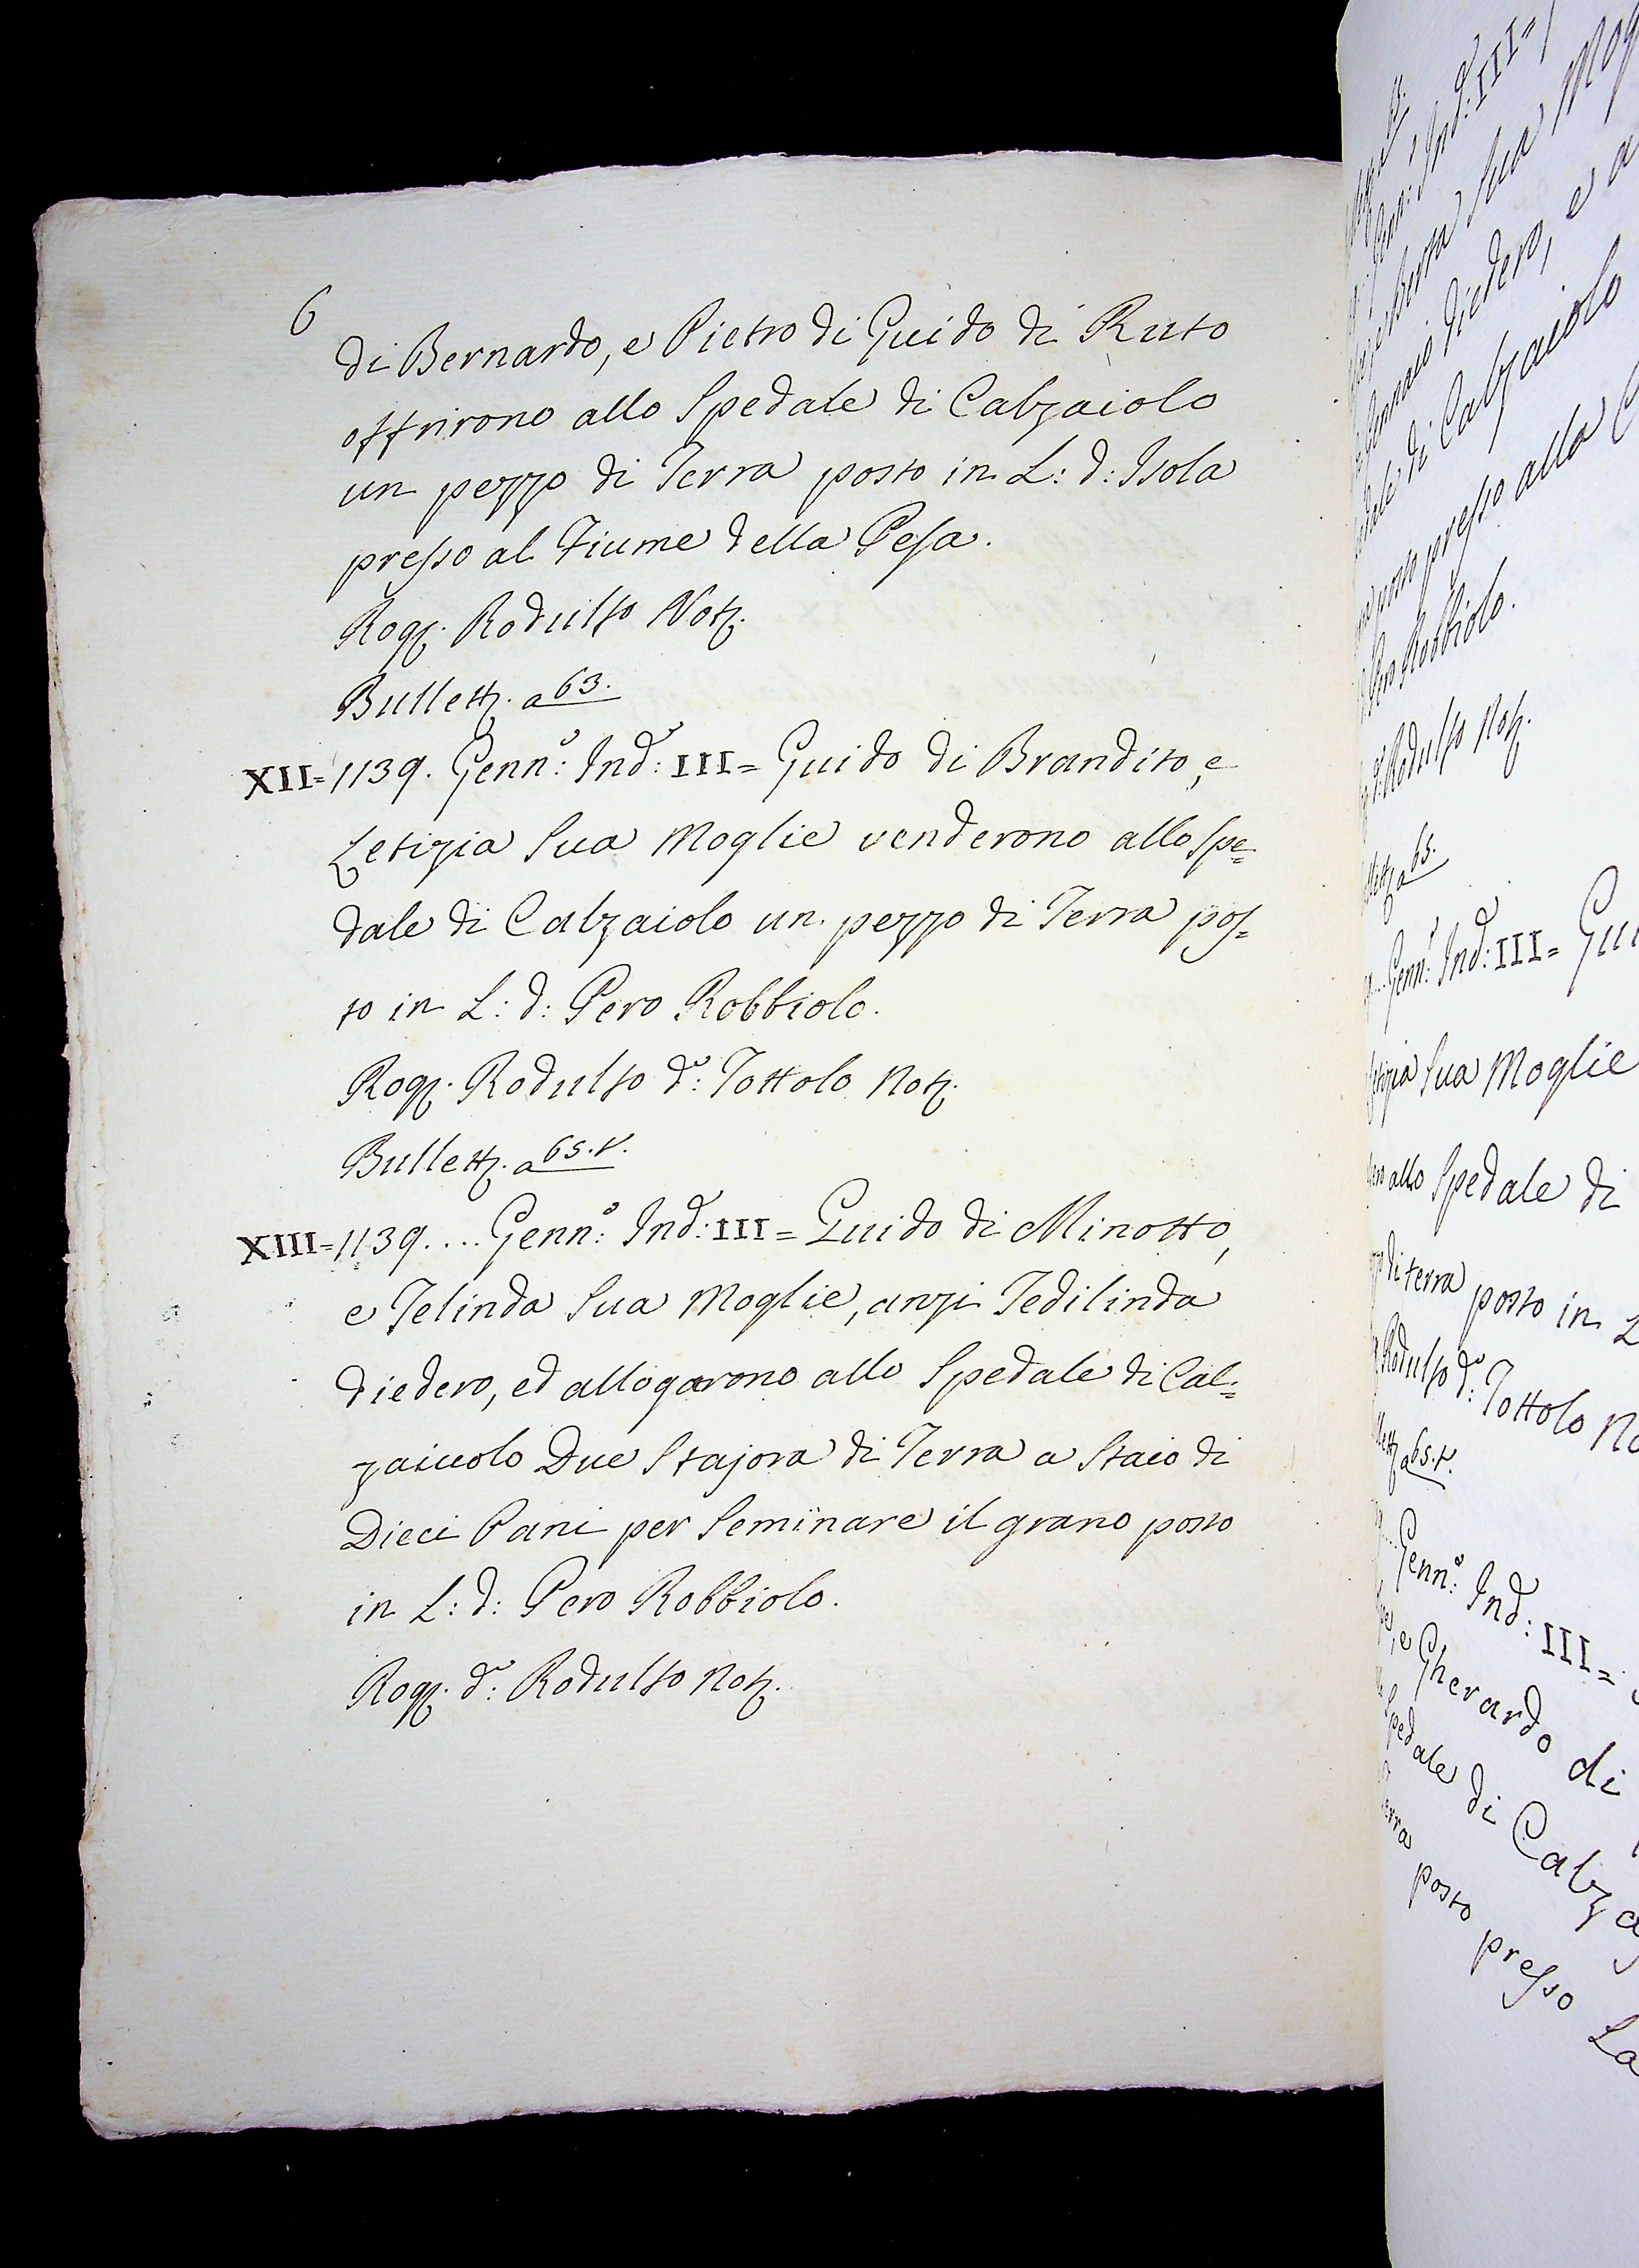 6
di Bernardo, e Pietro di Guido di Ruto
offrirono allo Spedale di Calzaiolo
un pezzo di Terra posto in L: d: Isola
presso al Fiume della Pesa.
Rogz. Rodulfo Notz.
Bullettz. a 63.
XII = 1139. Gennº: Indº: III = Guido di Brandito, e
Letizia Sua Moglie venderono allo Spe=
dale di Calzaiolo un pezzo di Terra pos=
to in L: d: Pero Robbiolo.
Rogz. Rodulfo dº: Tottolo Notz.
Bullettz. a 65. t.
XIII = 1139.... Gennº: Indº: III = Guido di Minotto,
e Telinda Sua Moglie, anzi Tedilinda
diedero, ed allogarono allo Spedale di Cal=
zaiuolo Due Stajora di Terra a Staio di
Dieci Pani per Seminare il grano posto
in L: d: Pero Robbiolo.
Rogz. dº: Rodulfo Notz.
Indº: III =
Sua Mog
diedero, e a
di Calzaiolo
posto presso alla
Pero Robbiolo.
Rodulfo Notz.
a 65.
Gennº: Indº: III = Gui
Sua Moglie
allo Spedale di
di terra posto in L
Rodulfo dº: Tottolo No
a 65. t.
Gennº: Indº: III =
e Gherardo di
Spedale di Calza
posto presso La